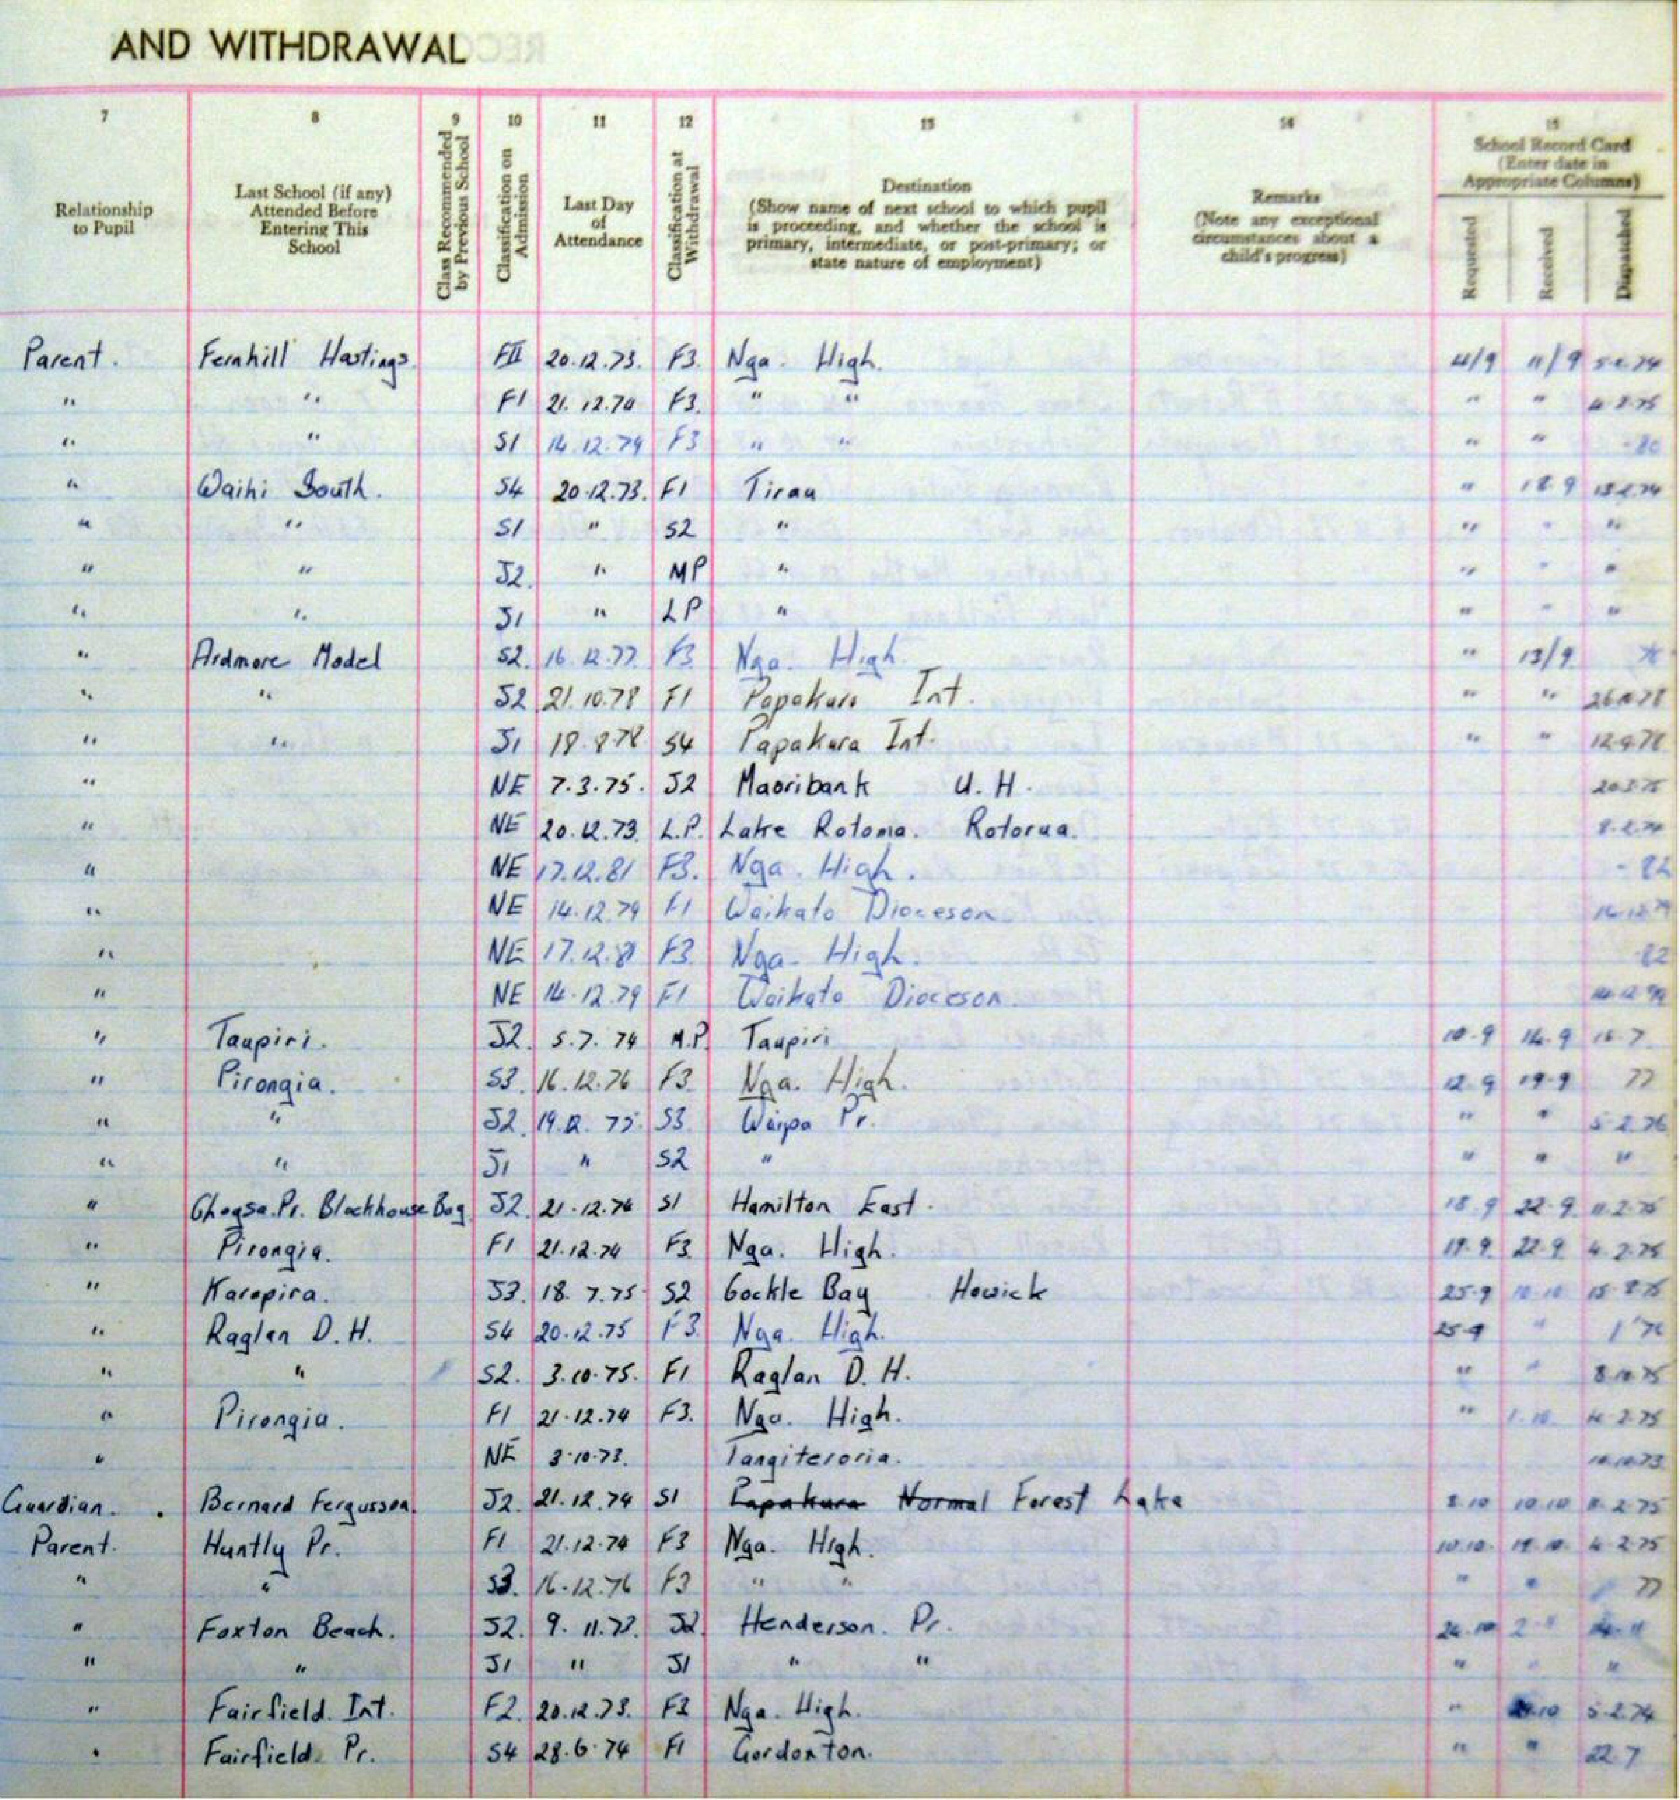 AND WITHDRAWAL
7 8 9 10 11 12 13 14 15
Relationship to Pupil
Last School (if any) Attended Before Entering This School
Class Recommended by Previous School
Classification on Admission
Last Day of Attendance
Classification at Withdrawal
Destination (Show name of next school to which pupil is proceeding, and whether the school is primary, intermediate, or post-primary; or state nature of employment)
Remarks (Note any exceptional circumstances about a child's progress)
School Record Card (Enter date in Appropriate Columns)
Requested Received Dispatched
Parent. Fernhill Hastings FII 20.12.73. F3. Nga. High. 11/9
" " F1 21.12.74 F3. " " " " 4.2.75
" " S1 14.12.79 F3 " " " " -80
" Waihi South. S4 20.12.73. F1 Tirau " 18.9
" " S1 " S2 " " " "
" " J2. " MP " " " "
" " J1 " LP " " " "
" Ardmore Model S2. 16.12.77. F3 Nga. High. " 13/9
" " J2 21.10.78 F1 Papakura Int. " "
" " J1 S4 Papakura Int. " " 12.9.78
" NE 7.3.75. J2 Maoribank U.H. 20.3.75
" NE 20.12.73. L.P. Lake Rotoma. Rotorua. 8.2.74
" NE 17.12.81 F3. Nga. High. -82
" NE 14.12.79 F1 Waikato Dioceson 14.12.79
" NE 17.12.81 F3 Nga. High. -82
" NE 14.12.79 F1 Waikato Dioceson 14.12.79
" Taupiri. J2. 5.7.74 M.P. Taupiri 10.9 14.9 16.7
" Pirongia. S3. 16.12.76 F3 Nga. High. 12.9 19.9 77
" " J2. 19.12.75 S3 Waipa Pr. " " 5.2.76
" " J1 " S2 " " " "
" Pr. Blockhouse Bay J2. 21.12.74 S1 Hamilton East. 18.9 22.9. 11.2.75
" Pirongia. F1 21.12.74 F3 Nga. High. 19.9. 22.9. 4.2.75
" Karapira. J3. 18.7.75 S2 Cockle Bay Howick 25.9 10.10 15.8.75
" Raglan D.H. S4 20.12.75 F3. Nga. High. 25.9 " 1'76
" " S2. 3.10.75. F1 Raglan D.H. " " 8.10.75
" Pirongia. F1 21.12.74 F3. Nga. High. " 1.10. 4.2.75
" NE 3.10.73. Tangiteroria. 10.10.73
Guardian. Bernard Fergusson. J2. 21.12.74 S1 Papakura Normal Forest Lake 8.10 10.10 11.2.75
Parent. Huntly Pr. F1 21.12.74 F3 Nga. High. 10.10. 19.10. 4.2.75
" " S3. 16.12.76 F3 " " " " 77
" Foxton Beach. J2. 9.11.73. J2. Henderson. Pr. 24.10 2.11 14.11
" " J1 " J1 " " " " "
" Fairfield Int. F2. 20.12.73. F3 Nga. High. " 5.2.74
" Fairfield Pr. S4 28.6.74 F1 Gordonton. " " 22.7